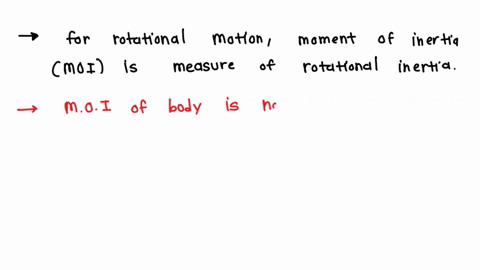 → for rotational motion, moment of inertia
(MOI) is measure of rotational inertia.
→ M.O.I of body is